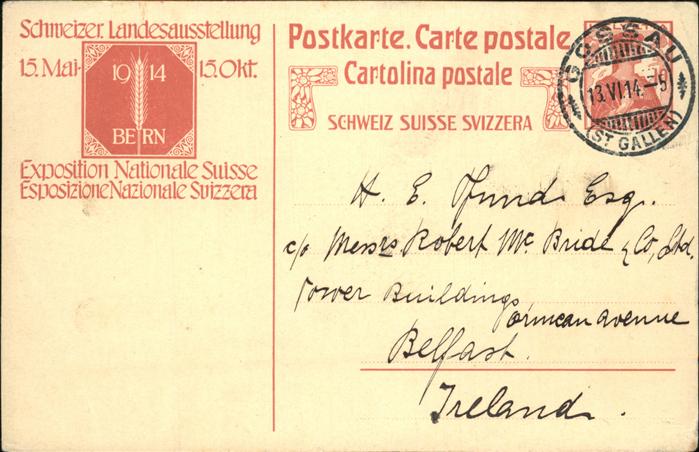 Schweizer. Landesausstellung
15. Mai- 15. Okt.
19 14
BERN
Exposition Nationale Suisse
Esposizione Nazionale Svizzera
Postkarte. Carte postale.
Cartolina postale
SCHWEIZ SUISSE SVIZZERA
GOSSAU
13.VI.14.-5
(ST GALLEN)
H. E. Esq.
c/o Messrs Robert Mc Bride & Co, Ltd.
Tower Buildings
Ormeau avenue
Belfast.
Ireland.